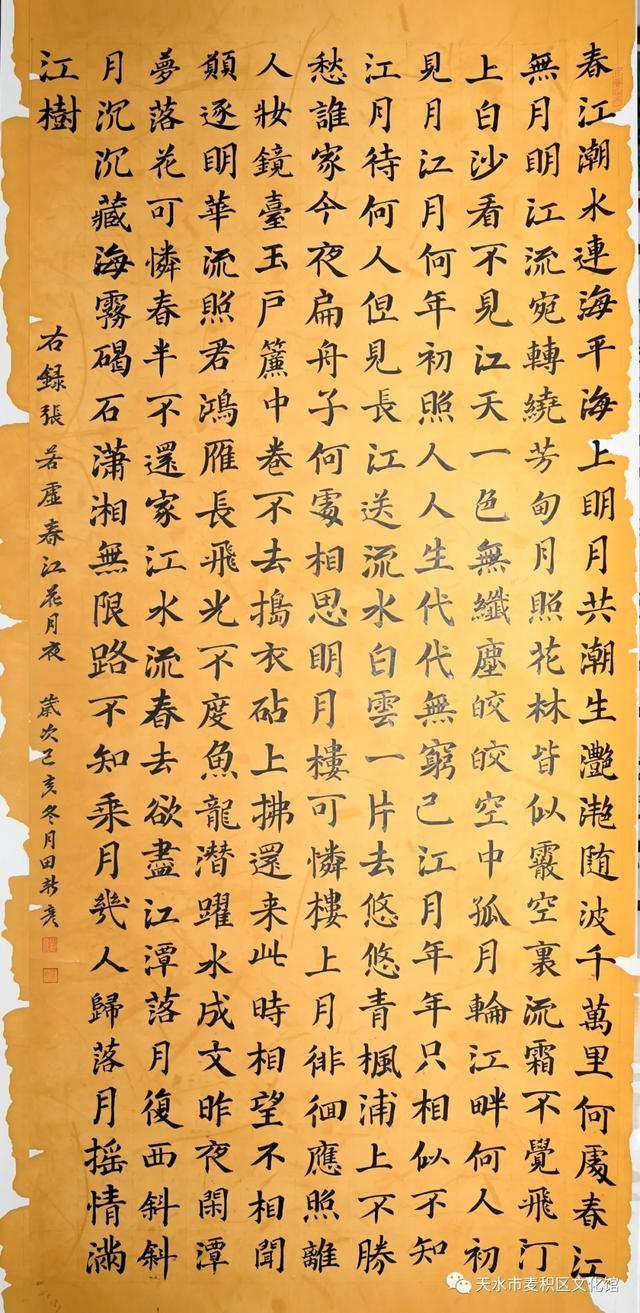 春江潮水連海平海上明月共潮生灩灔随波千萬里何處春江
無月明江流宛轉繞芳甸月照花林皆似霰空裏流霜不覺飛汀
上白沙看不見江天一色無纖塵皎皎空中孤月輪江畔何人初
見月江月何年初照人人生代代無窮已江月年年只相似不知
江月待何人但見長江送流水白雲一片去悠悠青楓浦上不勝
愁誰家今夜扁舟子何處相思明月樓可憐樓上月徘徊應照離
人妝鏡臺玉戶簾中卷不去搗衣砧上拂還来此時相望不相聞
願逐明華流照君鴻雁長飛光不度魚龍潜躍水成文昨夜閑潭
夢落花可憐春半不還家江水流春去欲盡江潭落月復西斜斜
月沉沉藏海霧碣石瀟湘無限路不知乘月幾人歸落月摇情滿
江樹
右録張若虛春江花月夜 歲次己亥冬月田新彦
天水市麦积区文化馆